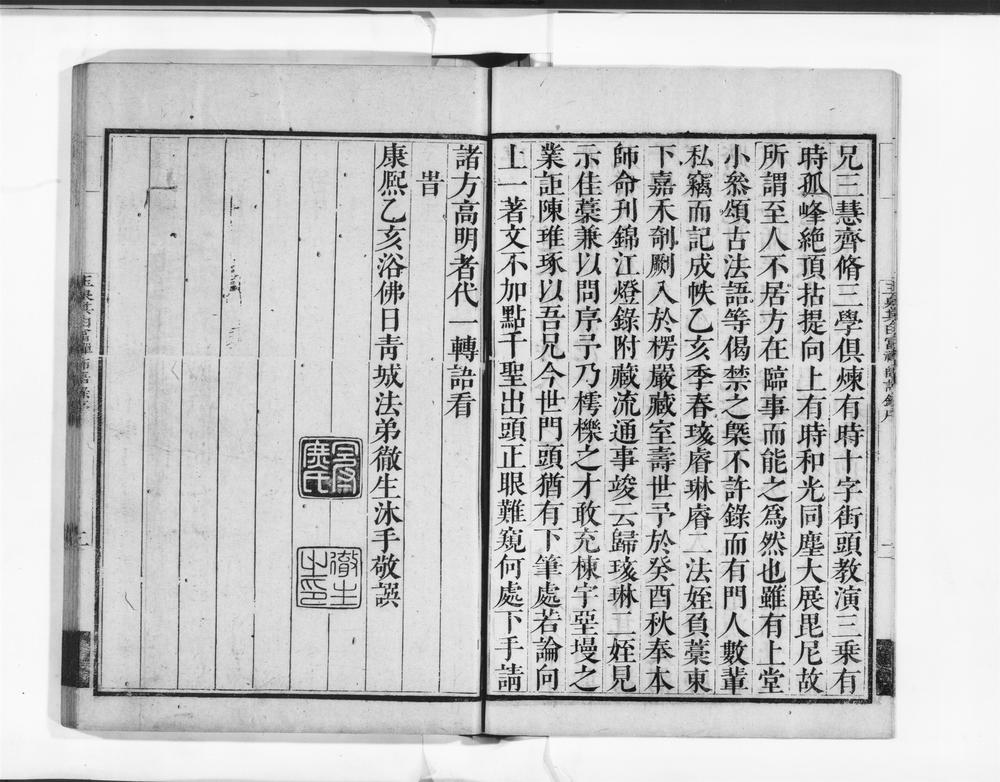 兄三慧齊脩三學俱煉有時十字街頭教演三乗有
時孤峰絶頂拈提向上有時和光同塵大展毘尼故
所謂至人不居方在臨事而能之爲然也雖有上堂
小叅頌古法語等偈禁之槩不許錄而有門人數輩
私竊而記成帙乙亥季春㻏睿琳睿二法姪負藁東
下嘉禾剞劂入於楞嚴藏室壽世予於癸酉秋奉本
師命刋錦江燈錄附藏流通事竣云歸㻏琳二姪見
示佳藁兼以問序予乃樗櫟之才敢充棟宇堊墁之
業詎陳琟琢以吾兄今世門頭猶有下筆處若論向
上一著文不加點千聖出頭正眼難窺何處下手請
諸方高明者代一轉語看
旹
康熈乙亥浴佛日靑城法弟徹生沐手敬譔
徹生
之印